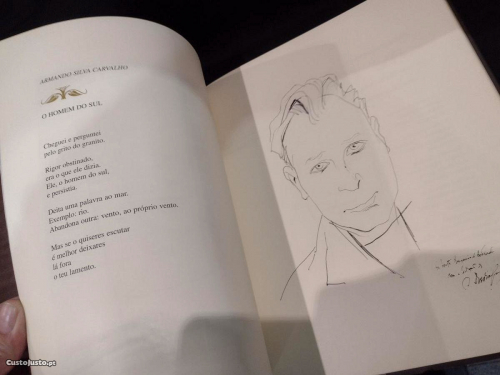 ARMANDO SILVA CARVALHO
O HOMEM DO SUL
Cheguei e perguntei
pelo grito do granito.
Rigor obstinado,
era o que ele dizia.
Ele, o homem do sul,
e persistia.
Deita uma palavra ao mar.
Exemplo: rio.
Abandona outra: vento, ao próprio vento.
Mas se o quiseres escutar
é melhor deixares
lá fora
o teu lamento.
CustoJusto.pt